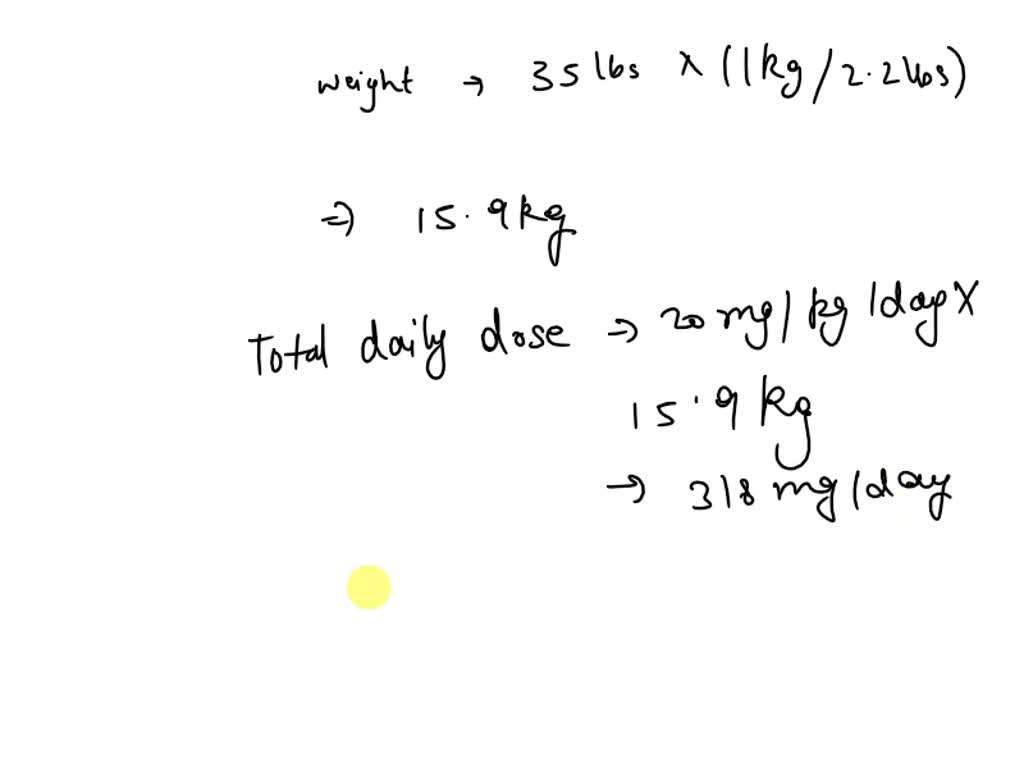 weight → 35 lbs x (1kg/2.2lbs)
⇒ 15.9kg
Total daily dose ⇒ 20 mg/kg/day X
15.9 kg
→ 318 mg/day